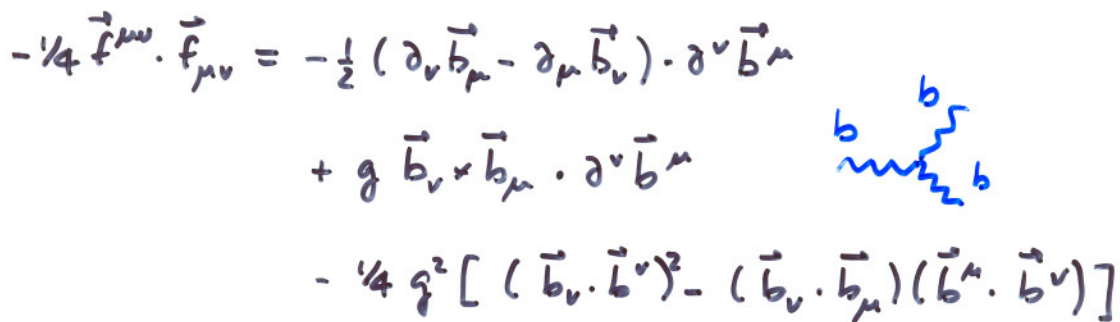 -1/4 \vec{f}^{μν} · \vec{f}_{μν} = -\frac{1}{2} (∂_ν \vec{b}_μ - ∂_μ \vec{b}_ν) · ∂^ν \vec{b}^μ
+ g \vec{b}_ν × \vec{b}_μ · ∂^ν \vec{b}^μ
b b b
- 1/4 g^2 [ (\vec{b}_ν · \vec{b}^ν)^2 - (\vec{b}_ν · \vec{b}_μ)(\vec{b}^μ · \vec{b}^ν) ]